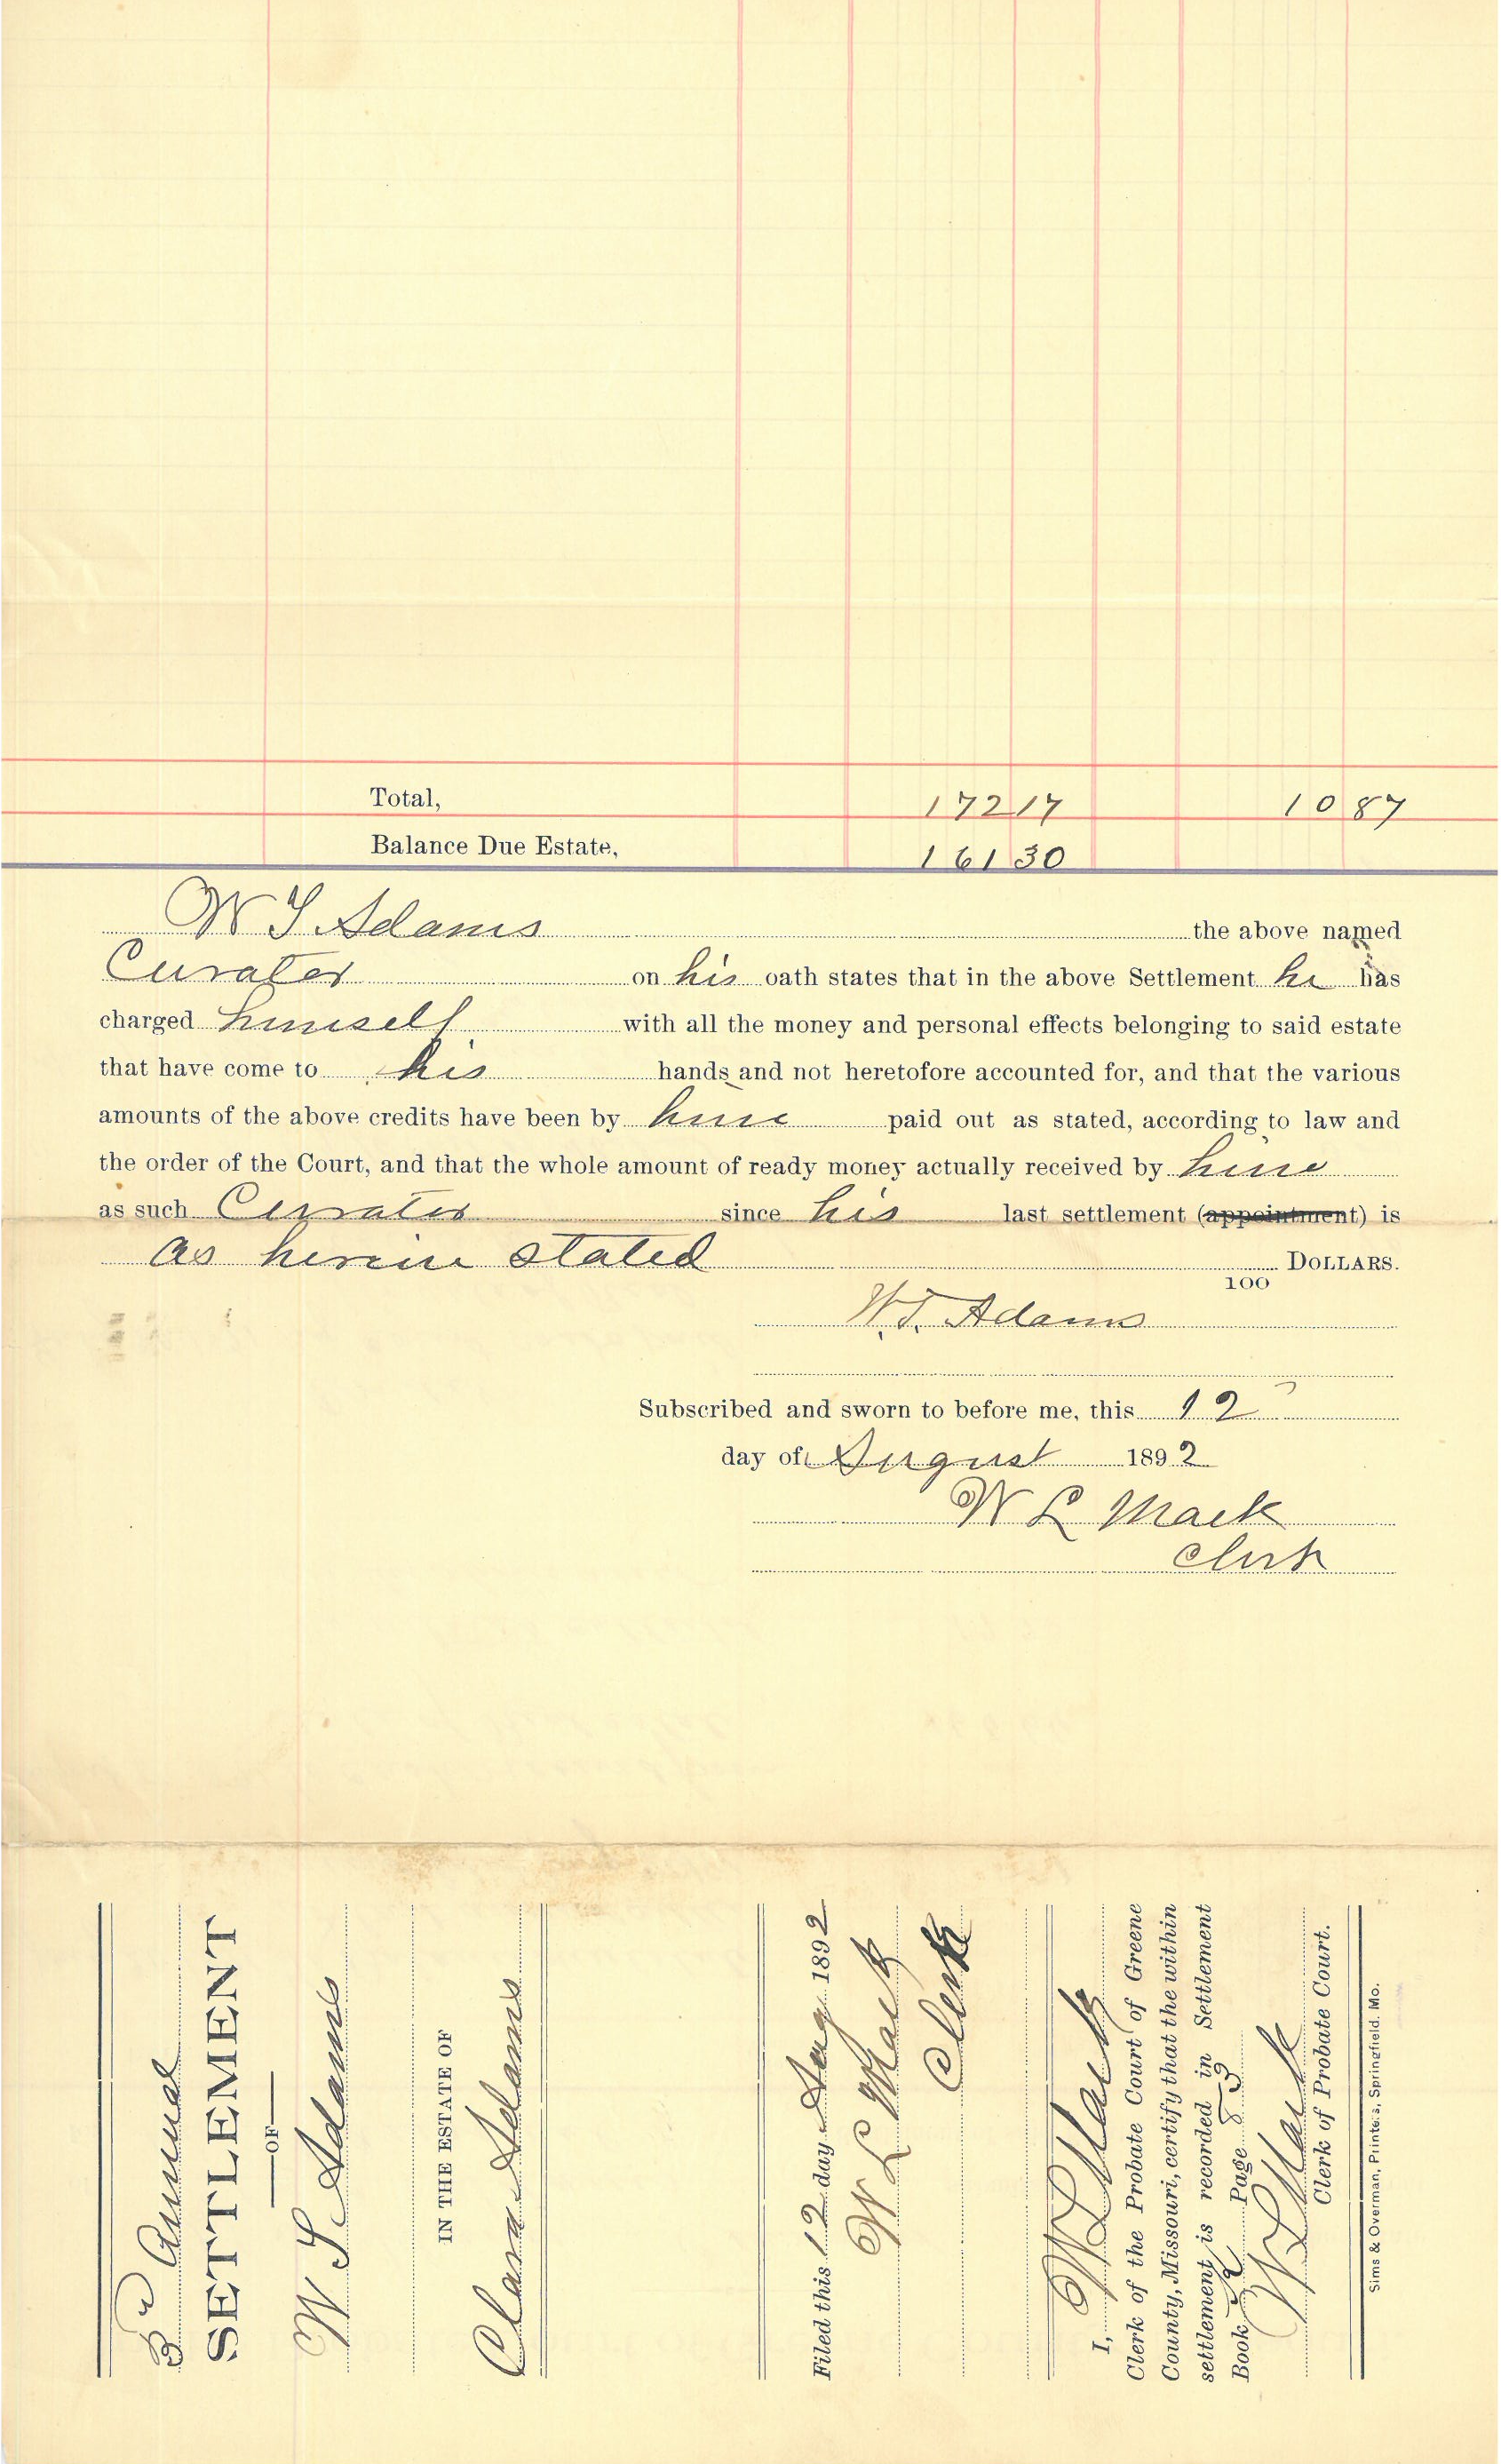 Total, 172 17 10 87
Balance Due Estate, 161 30
W T Adams the above named
Curator on his oath states that in the above Settlement he has
charged himself with all the money and personal effects belonging to said estate
that have come to his hands and not heretofore accounted for, and that the various
amounts of the above credits have been by him paid out as stated, according to law and
the order of the Court, and that the whole amount of ready money actually received by him
as such Curator since his last settlement (appointment) is
as herein stated DOLLARS.
100
W.T. Adams
Subscribed and sworn to before me, this 12
day of August 1892
W L Mack
Clerk
Annual
SETTLEMENT
OF
W T Adams
IN THE ESTATE OF
Clara Adams
Filed this 12 day Aug 1892
W L Mack
Clerk
I, W L Mack
Clerk of the Probate Court of Greene
County, Missouri, certify that the within
settlement is recorded in Settlement
Book Page 853
W L Mack
Clerk of Probate Court.
Sims & Overman, Printers, Springfield, Mo.